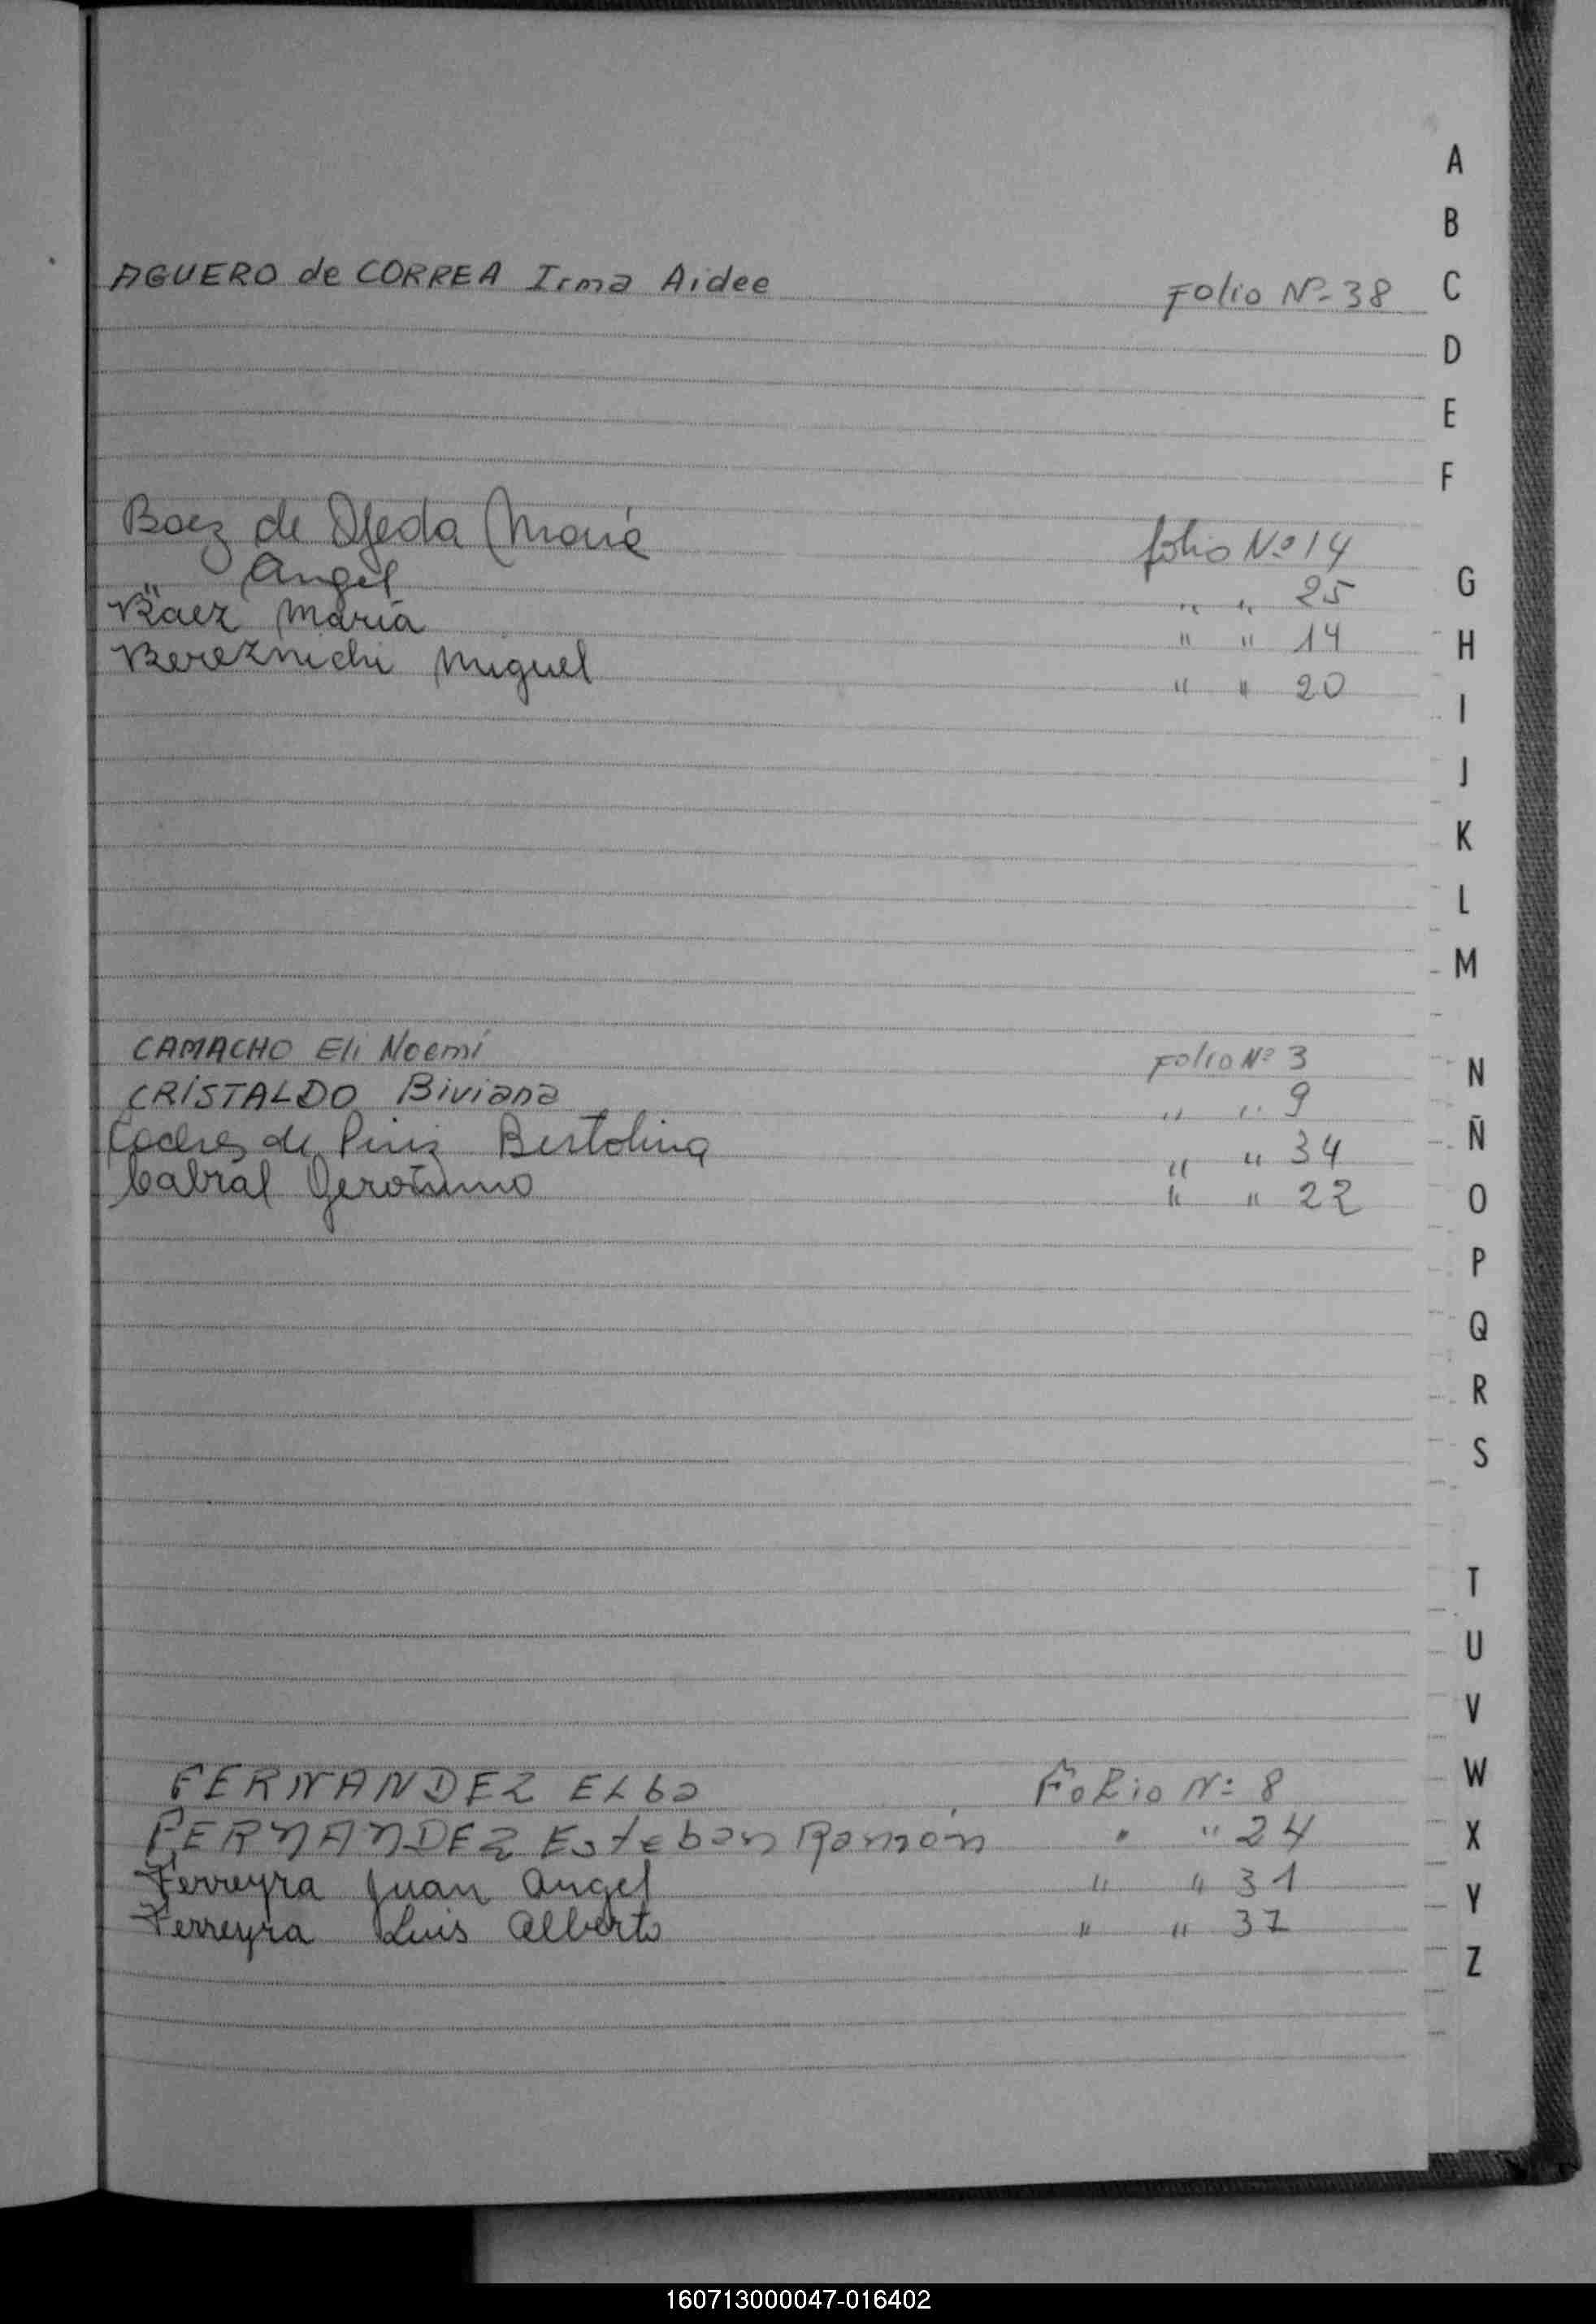 AGUERO de CORREA Irma Aidee Folio Nº 38
Baez de Ojeda María folio Nº 14
" Angel " " 25
Baez María " " 14
Bereznichi Miguel " " 20
CAMACHO Eli Noemí Folio Nº 3
CRISTALDO Biviana " " 9
de Piriz Bertolina " " 34
Cabral Geronimo " " 22
FERNANDEZ ELba FoLio Nº 8
FERNANDEZ Esteban Ramón " " 24
Ferreyra Juan Angel " " 31
Ferreyra Luis Alberto " " 37
A
B
C
D
E
F
G
H
I
J
K
L
M
N
Ñ
O
P
Q
R
S
T
U
V
W
X
Y
Z
160713000047-016402